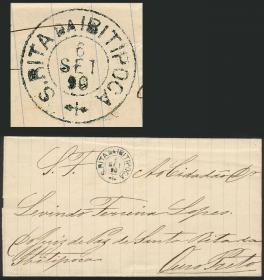 S. RITA DA IBITIPOCA
6
SET
90
S. RITA DA IBITIPOCA
SET
90
S. P. Ao Cidadão
Levindo Ferreira Lopes.
Juiz de Paz Santa Rita da
Ibitipoca Ouro Preto